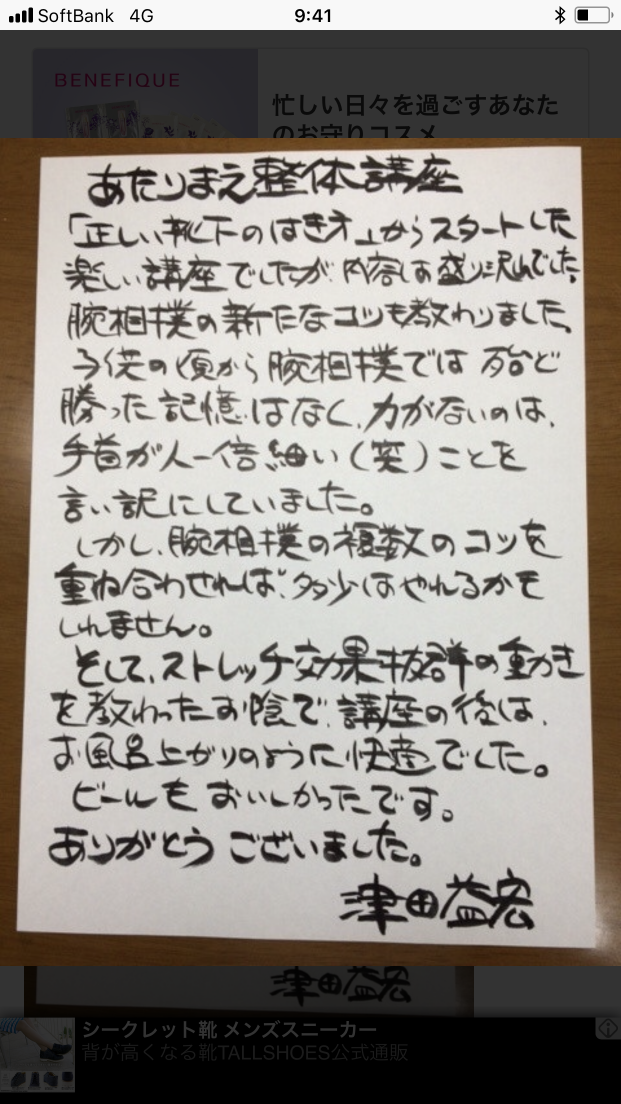 SoftBank 4G 9:41
BENEFIQUE
忙しい日々を過ごすあなた
のお守りコスメ
あたりまえ整体講座
「正しい靴下のはき方」からスタートした
楽しい講座でしたが、内容は盛り沢山でした。
腕相撲の新たなコツも教わりました。
子供の頃から腕相撲では殆ど
勝った記憶はなく、力がないのは、
手首が人一倍細い(笑)ことを
言い訳にしていました。
しかし、腕相撲の複数のコツを
重ね合わせれば、多少はやれるかも
しれません。
そして、ストレッチ効果抜群の動き
を教わったお陰で、講座の後は、
お風呂上がりのように快適でした。
ビールもおいしかったです。
ありがとうございました。
津田益宏
津田益宏
シークレット靴 メンズスニーカー
背が高くなる靴TALLSHOES公式通販